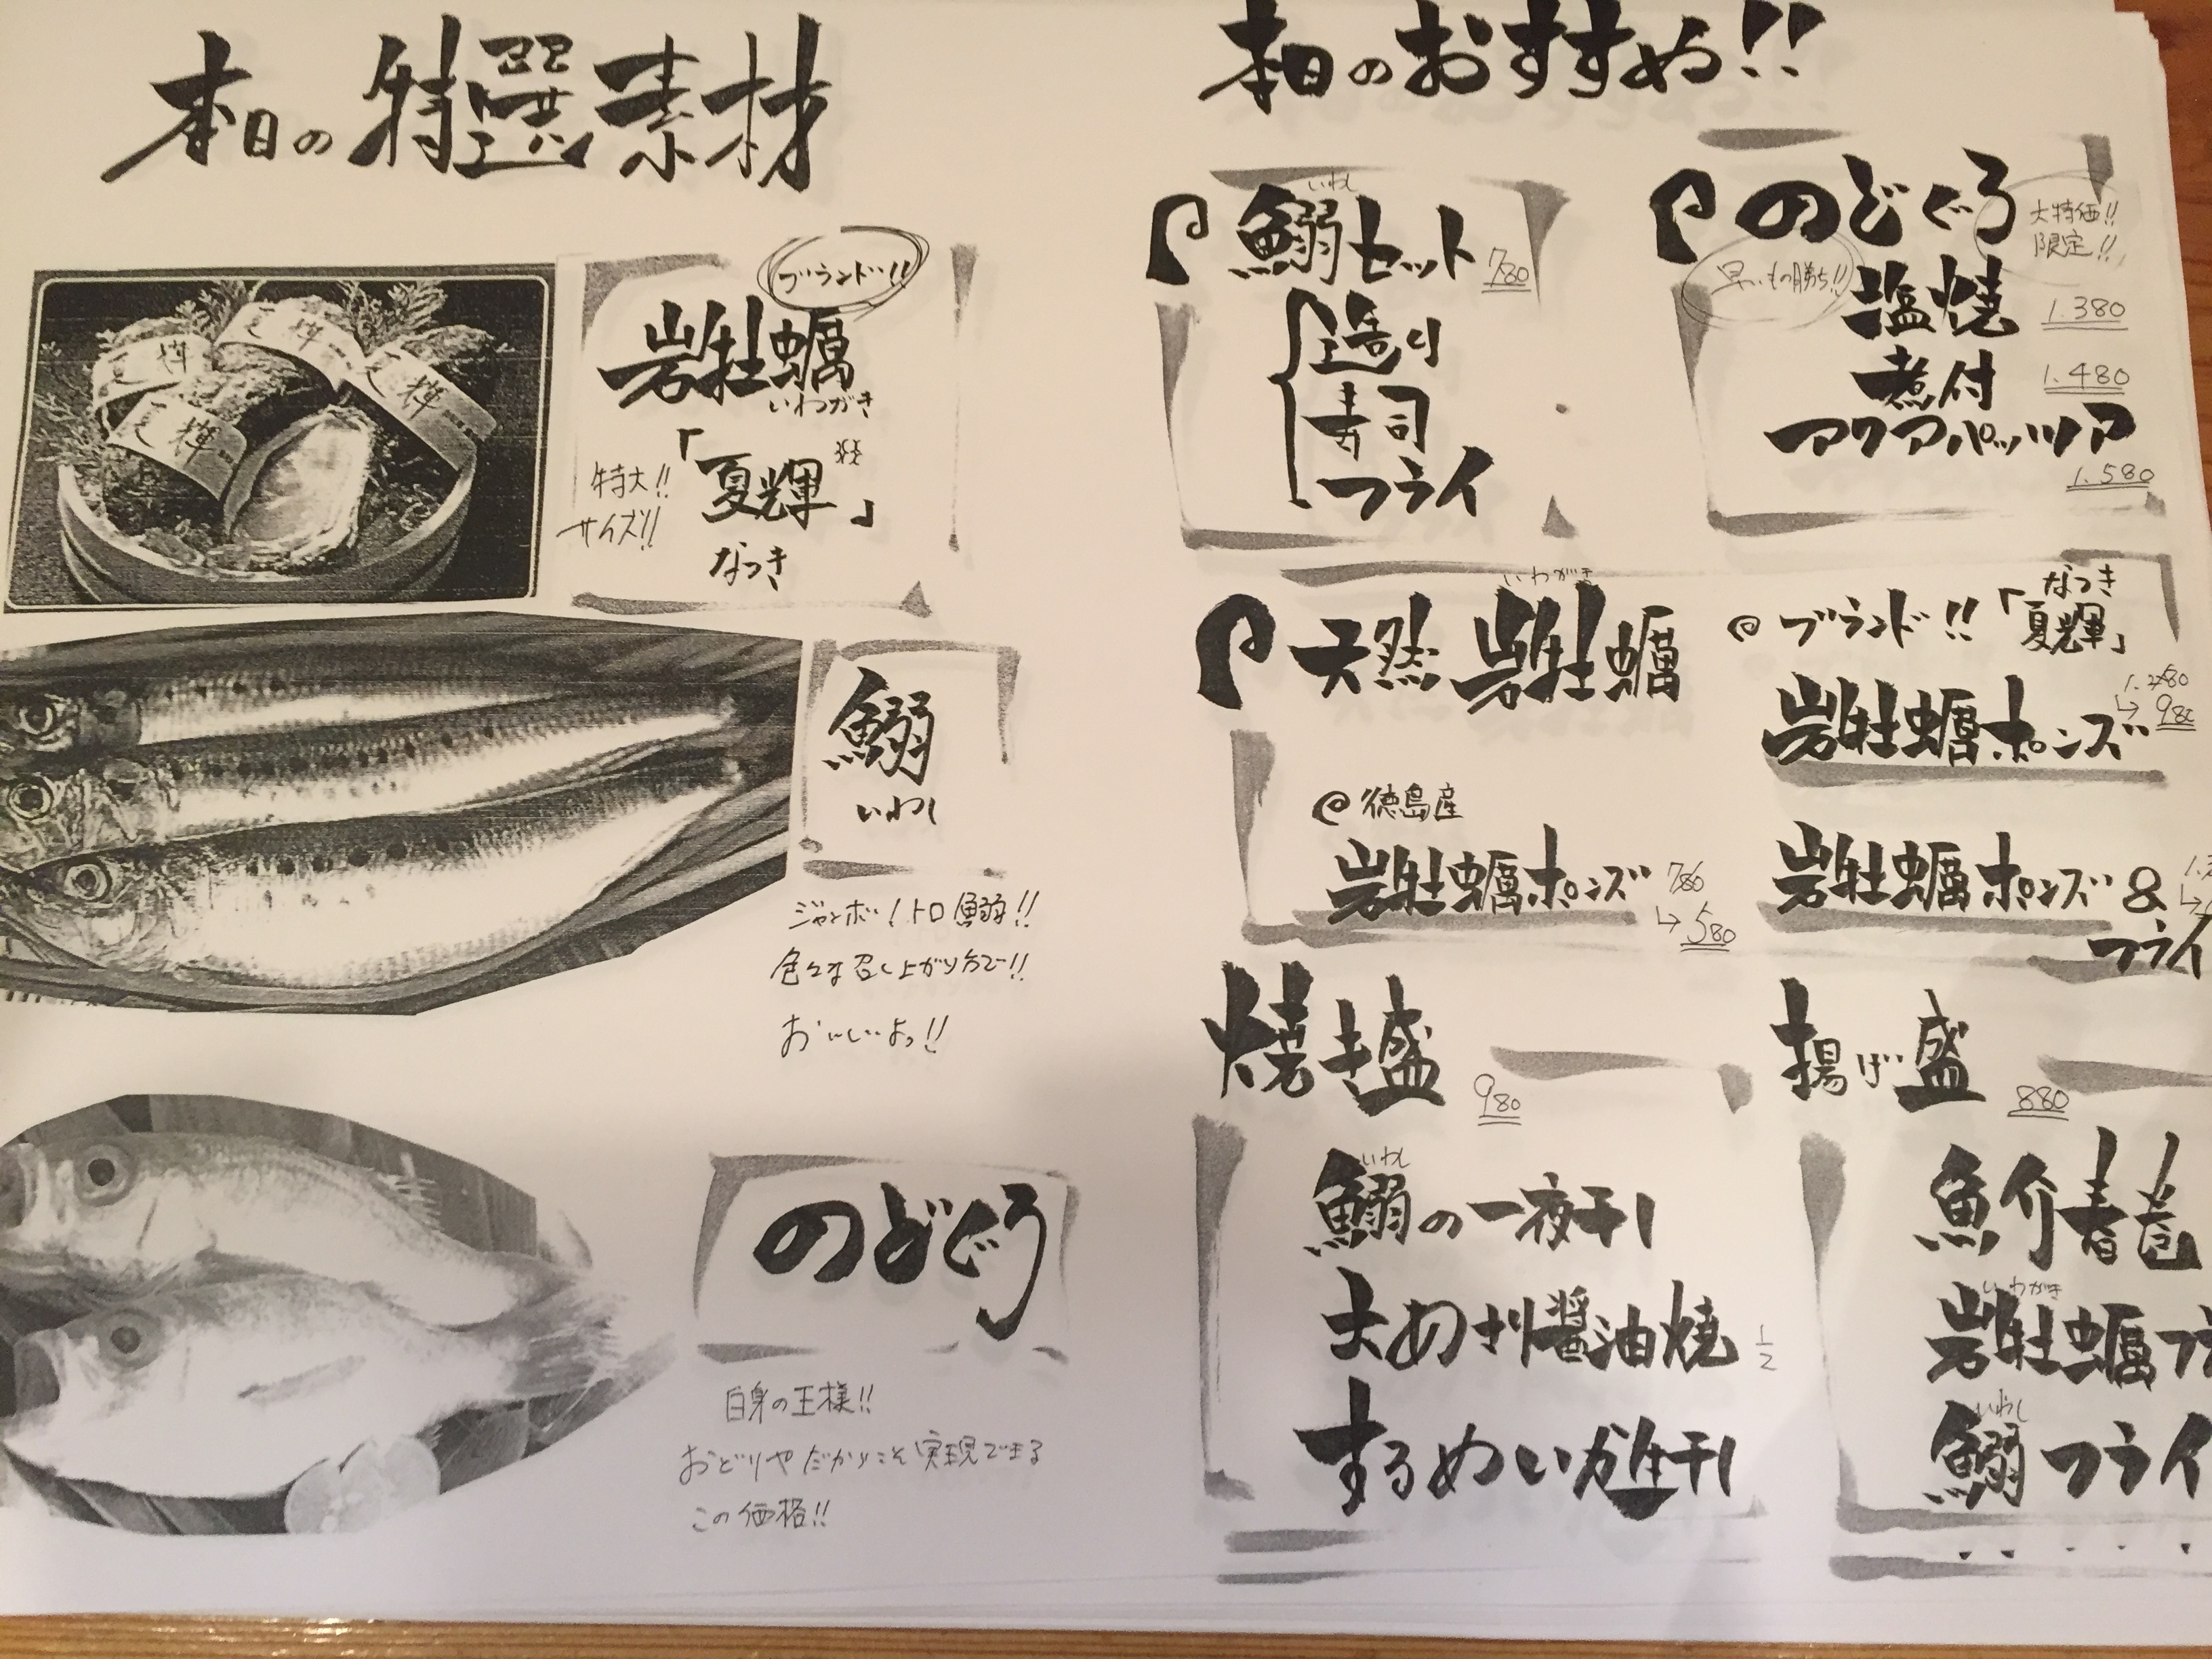 本日の特選素材
ブランド!!
岩牡蠣
いわがき
「夏輝」
なつき
特大!!
サイズ!!
夏輝
夏輝
夏輝
夏輝
鰯
いわし
ジャンボ!トロ鰯!!
色々な召し上がり方で!!
おいしいよっ!!
のどぐろ
白身の王様!!
おどりやだからこそ実現できる
この価格!!
本日のおすすめ!!
いわし
鰯セット 780
造り
寿司
フライ
のどぐろ
大特価!!
限定!!
早いもの勝ち!!
塩焼 1.380
煮付 1.480
アクアパッツァ
1.580
いわがき
天然岩牡蠣
徳島産
岩牡蠣ポンズ 780
↳ 580
ブランド!!「夏輝」
なつき
岩牡蠣ポンズ 1.280
↳ 980
岩牡蠣ポンズ &
フライ
焼き盛 980
いわし
鰯の一夜干し
大あさり醤油焼 1/2
するめいか生干し
揚げ盛 880
魚介春巻
いわがき
岩牡蠣フ
いわし
鰯フライ